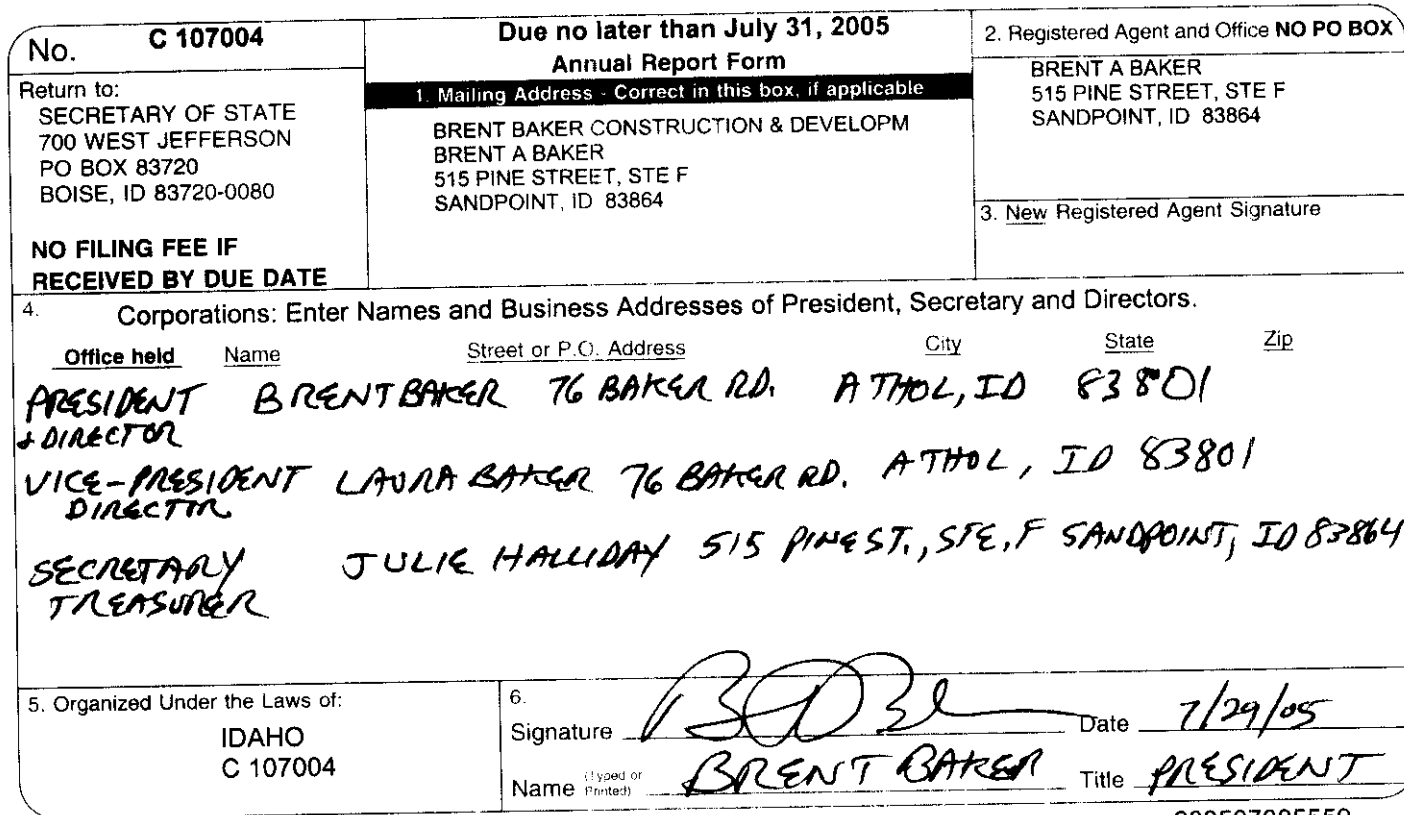 No. C 107004
Return to:
SECRETARY OF STATE
700 WEST JEFFERSON
PO BOX 83720
BOISE, ID 83720-0080
NO FILING FEE IF
RECEIVED BY DUE DATE
Due no later than July 31, 2005
Annual Report Form
1. Mailing Address - Correct in this box, if applicable
BRENT BAKER CONSTRUCTION & DEVELOPM
BRENT A BAKER
515 PINE STREET, STE F
SANDPOINT, ID 83864
2. Registered Agent and Office NO PO BOX
BRENT A BAKER
515 PINE STREET, STE F
SANDPOINT, ID 83864
3. New Registered Agent Signature
4. Corporations: Enter Names and Business Addresses of President, Secretary and Directors.
Office held Name Street or P.O. Address City State Zip
PRESIDENT BRENT BAKER 76 BAKER RD. ATHOL, ID 83801
& DIRECTOR
VICE-PRESIDENT LAURA BAKER 76 BAKER RD. ATHOL, ID 83801
DIRECTOR
SECRETARY JULIE HALLIDAY 515 PINE ST., STE, F SANDPOINT, ID 83864
TREASURER
5. Organized Under the Laws of:
IDAHO
C 107004
6.
Signature Date 7/29/05
Name (Typed or Printed) BRENT BAKER Title PRESIDENT